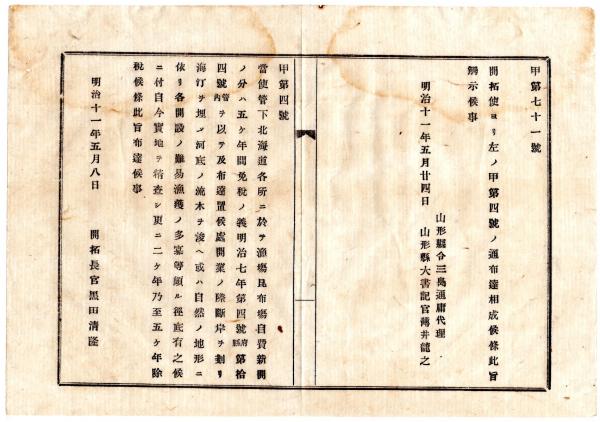 甲第七十一號
開拓使ヨリ左ノ甲第四號ノ通布達相成候條此旨
揭示候事
明治十一年五月廿四日
山形縣令三島通庸代理
山形縣大書記官薄井龍之
甲第四號
當使管下北海道各所ニ於テ漁場昆布場自費新開
ノ分ハ五ケ年間免稅ノ義明治七年第四號府縣第拾
四號管內ヲ以テ及布達置候處開業ノ際斷岸ヲ割リ
海汀ヲ埋メ河底ノ流木ヲ浚ヘ或ハ自然ノ地形ニ
依リ各開設ノ難易漁獲ノ多寡等頗ル徑庭有之候
ニ付自今實地ヲ精査シ更ニ二ケ年乃至五ケ年除
稅候條此旨布達候事
明治十一年五月八日
開拓長官黑田清隆